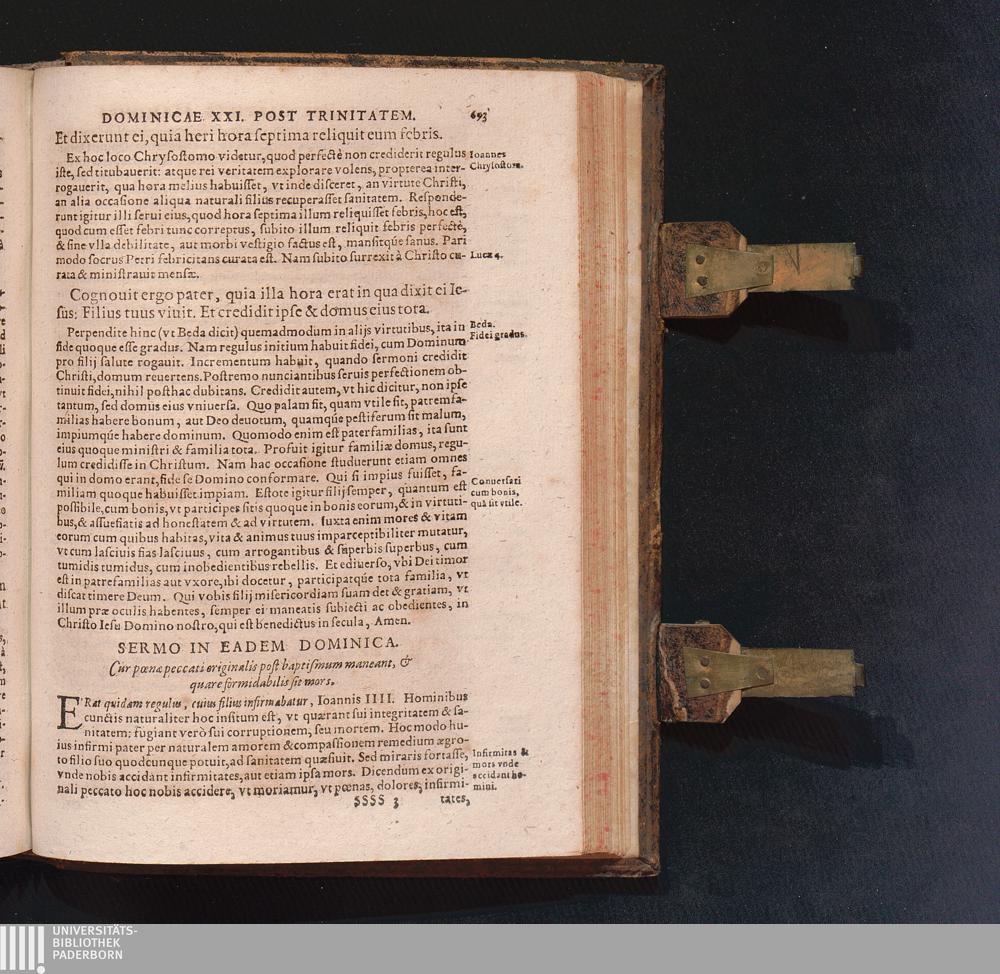 DOMINICAE XXI. POST TRINITATEM. 693
Et dixerunt ei, quia heri hora ſeptima reliquit eum febris.
Ex hoc loco Chryſoſtomo videtur, quod perfectè non crediderit regulus
iſte, ſed titubauerit: atque rei veritatem explorare volens, propterea inter-
rogauerit, qua hora melius habuiſſet, vt inde diſceret, an virtute Chriſti,
an alia occaſione aliqua naturali filius recuperaſſet ſanitatem. Reſponde-
runt igitur illi ſerui eius, quod hora ſeptima illum reliquiſſet febris, hoc eſt,
quod cum eſſet febri tunc correptus, ſubito illum reliquit febris perfectè,
& ſine vlla debilitate, aut morbi veſtigio factus eſt, manſitq́ue ſanus. Pari
modo ſocrus Petri febricitans curata eſt. Nam ſubito ſurrexit à Chriſto cu-
rata & miniſtrauit menſæ.
Ioannes
Chryſoſtom.
Lucæ 4.
Cognouit ergo pater, quia illa hora erat in qua dixit ei Ie-
ſus: Filius tuus viuit. Et credidit ipſe & domus eius tota.
Perpendite hinc (vt Beda dicit) quemadmodum in alijs virtutibus, ita in
fide quoque eſſe gradus. Nam regulus initium habuit fidei, cum Dominum
pro filij ſalute rogauit. Incrementum habuit, quando ſermoni credidit
Chriſti, domum reuertens. Poſtremo nunciantibus ſeruis perfectionem ob-
tinuit fidei, nihil poſthac dubitans. Credidit autem, vt hic dicitur, non ipſe
tantum, ſed domus eius vniuerſa. Quo palam fit, quam vtile ſit, patremfa-
milias habere bonum, aut Deo deuotum, quamq́ue peſtiferum ſit malum,
impiumq́ue habere dominum. Quomodo enim eſt paterfamilias, ita ſunt
eius quoque miniſtri & familia tota. Profuit igitur familiæ domus, regu-
lum credidiſſe in Chriſtum. Nam hac occaſione ſtuduerunt etiam omnes
qui in domo erant, fide ſe Domino conformare. Qui ſi impius fuiſſet, fa-
miliam quoque habuiſſet impiam. Eſtote igitur filij ſemper, quantum eſt
poſſibile, cum bonis, vt participes ſitis quoque in bonis eorum, & in virtuti-
bus, & aſſueſiatis ad honeſtatem & ad virtutem. Iuxta enim mores & vitam
eorum cum quibus habitas, vita & animus tuus imparceptibiliter mutatur,
vt cum laſciuis fias laſciuus, cum arrogantibus & ſuperbis ſuperbus, cum
tumidis tumidus, cum inobedientibus rebellis. Et ediuerſo, vbi Dei timor
eſt in patrefamilias aut vxore, ibi docetur, participatq́ue tota familia, vt
diſcat timere Deum. Qui vobis filij miſericordiam ſuam det & gratiam, vt
illum præ oculis habentes, ſemper ei maneatis ſubiecti ac obedientes, in
Chriſto Ieſu Domino noſtro, qui eſt benedictus in ſecula, Amen.
Beda.
Fidei gradus.
Conuerſari
cum bonis,
quā ſit vtile.
SERMO IN EADEM DOMINICA.
Cur pœnæ peccati originalis poſt baptiſmum maneant, &
quare formidabilis ſit mors.
ERat quidam regulus, cuius filius infirmabatur, Ioannis IIII. Hominibus
cunctis naturaliter hoc inſitum eſt, vt quærant ſui integritatem & ſa-
nitatem: fugiant verò ſui corruptionem, ſeu mortem. Hoc modo hu-
ius infirmi pater per naturalem amorem & compaſſionem remedium ægro-
to filio ſuo quodcunque potuit, ad ſanitatem quæſiuit. Sed miraris fortaſſe,
vnde nobis accidant infirmitates, aut etiam ipſa mors. Dicendum ex origi-
nali peccato hoc nobis accidere, vt moriamur, vt pœnas, dolores, infirmi-
Infirmitas &
mors vnde
accidant ho-
mini.
SSSS 3 tates,
UNIVERSITÄTS-
BIBLIOTHEK
PADERBORN